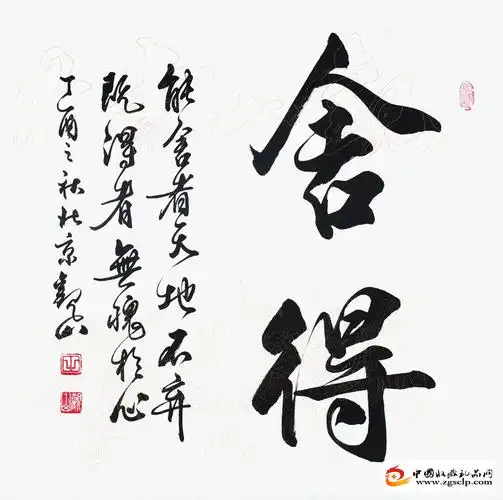 舍得
能舍者天地不弃
既得者無愧於心
丁酉之秋北京觀山
中国收藏礼品网
www.zgsclp.com